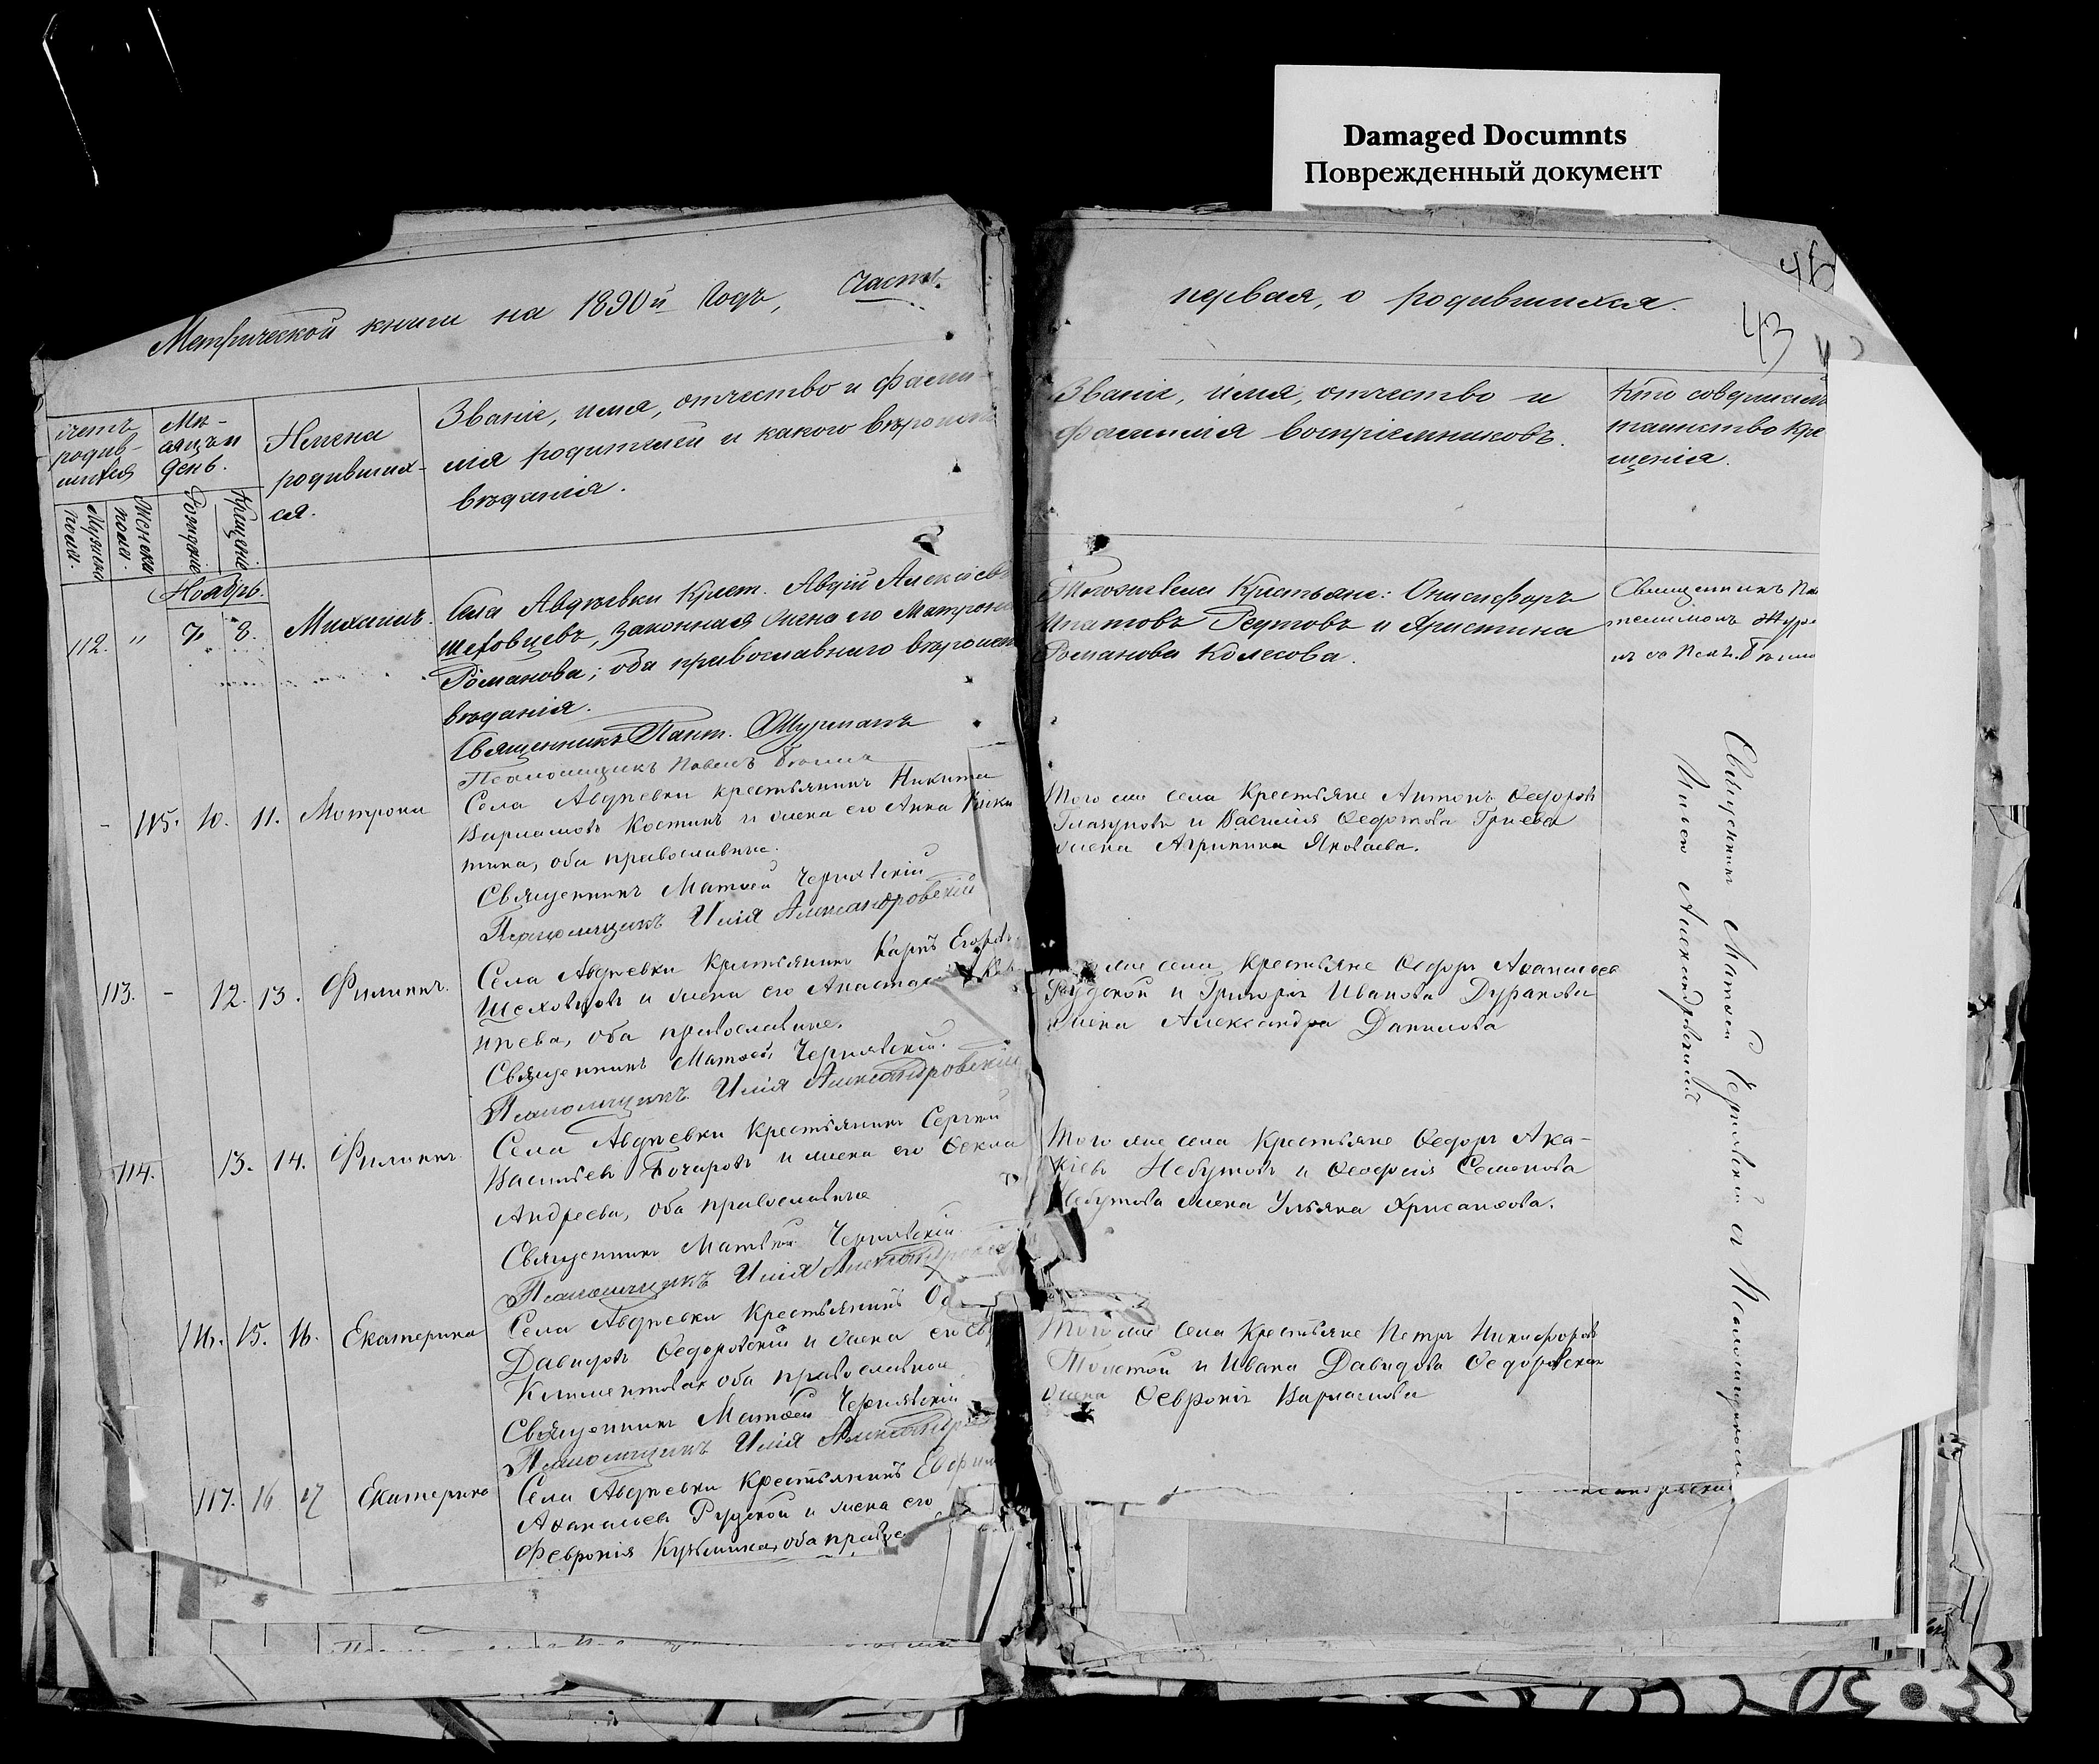 Damaged Documnts
Поврежденный документ
Метрической книги на 1890й годъ, Часть
первая, о родившихся.
43
счетъ родив-шихся
Мѣ-сяцъ и день.
Имена родивших-ся.
Званіе, имя, отчество и фами-
лія родителей и какого вѣроиспо
вѣданія.
Званіе, имя, отчество и
фамилія воспріемниковъ.
Кто совершалъ
таинство кре
щенія.
Мужска пола.
Женска пола.
Рожденіе
Крещеніе
Ноябрь.
112. " 7. 8. Михаилъ.
Села Авдѣевки Крест. Авдій Алексѣевъ
Шеховцевъ, законная жена его Матрона
Романова; оба православнаго вѣроиспо
вѣданія.
Священникъ Пант. Журманъ
Псаломщикъ Павелъ
Тогожъ села Крестьяне: Онисифоръ
Ипатовъ Реутовъ и Христина
Романова Колесова.
Священникъ Пан
телимонъ Жур
съ Псал.
- 115. 10. 11. Матрона
Села Авдѣевки крестьянинъ Никита
Варламовъ Костинъ и жена его Анна Ники
тина, оба православные.
Священникъ Матѳей Чернявскій
Псаломщикъ Илія Александровскій
Того же села Крестьяне Антонъ Ѳедоровъ
Глазуновъ и Василія Ѳедотова Гриева
жена Агрипина Яковлева.
113. - 12. 13. Филиппъ.
Села Авдѣевки Крестьянинъ Карпъ Егоровъ
Шеховцовъ и жена его Анастасія
оба православные.
Священникъ Матѳей Чернявскій.
Псаломщикъ Илія Александровскій
же села Крестьяне Ѳедоръ Аѳанасьевъ
Рудской и Григорія Иванова Дуракова
жена Александра Данилова
114. 13. 14. Филиппъ
Села Авдѣевки Крестьянинъ Сергѣй
Васильевъ Бочаровъ и жена его Ѳекла
Андреева, оба православные
Священникъ Матѳей Чернявскій
Псаломщикъ Илія Александровскій
Того же села Крестьяне Ѳедоръ Ака-
кіевъ Небутовъ и Ѳеофилія Семенова
Небутова жена Ульяна Хрисанѳова.
116. 15. 16. Екатерина
Села Авдѣевки Крестьянинъ
Давидовъ Ѳедоровскій и жена его
Климентова оба православные
Священникъ Матѳей Чернявскій
Псаломщикъ Илія Александр
Того же села Крестьяне Петръ Никифоровъ
Толстой и Ивана Давидова Ѳедоровскаго
жена Ѳевронія Варламова
117. 16. 17 Екатерина
Села Авдѣевки Крестьянинъ Евфим
Аѳанасьевъ Рудской и жена его
Февронія Кузьмина, оба правос
Священникъ Матѳей Чернявскій съ Псаломщикомъ
Ильею Александровскимъ